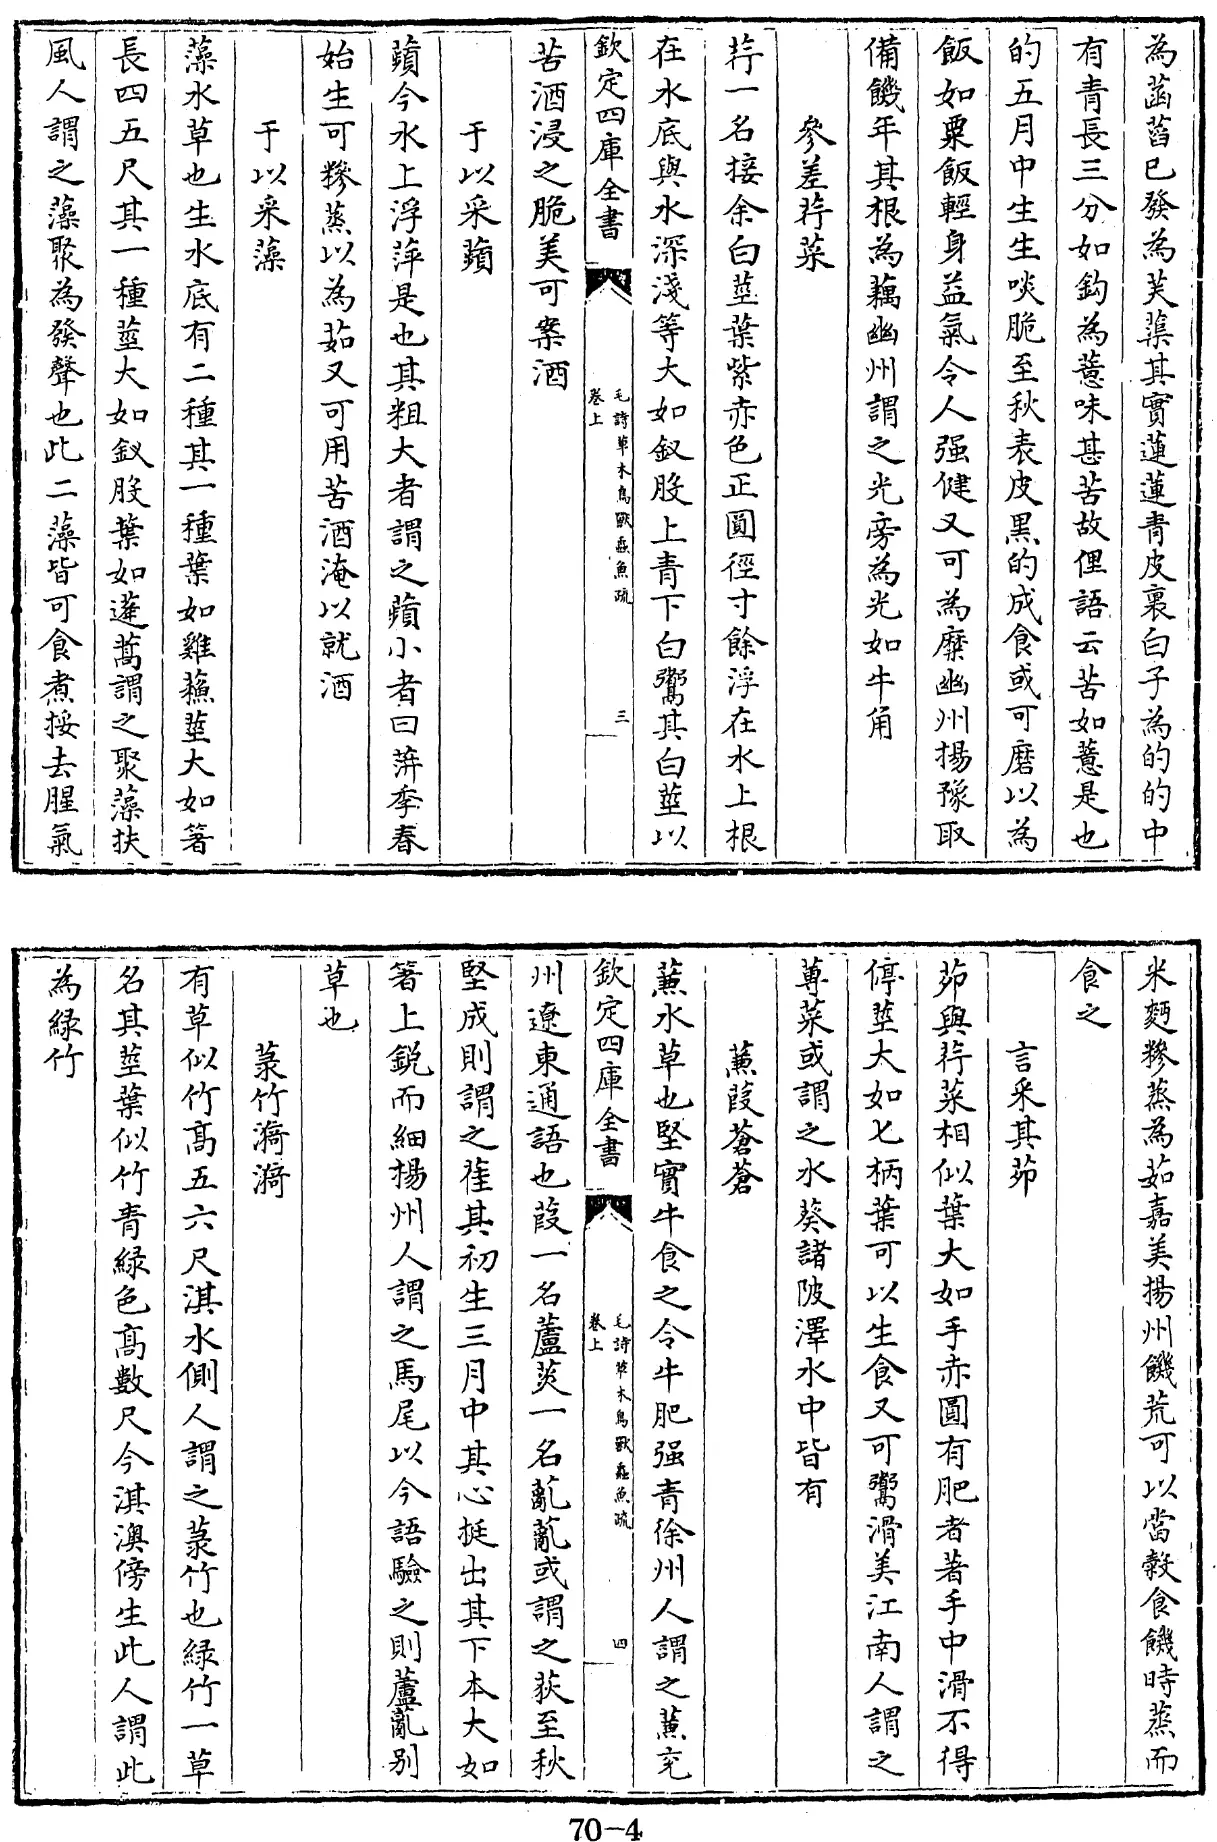 為菡萏巳發為芙蕖其實蓮蓮青皮裏白子為的的中
有青長三分如鈎為薏味甚苦故俚語云苦如薏是也
的五月中生生啖脆至秋表皮黒的成食或可磨以為
飯如粟飯輕身益氣令人强健又可為糜幽州揚豫取
備饑年其根為藕幽州謂之光旁為光如牛角
參差荇菜
荇一名接余白莖葉紫赤色正圓徑寸餘浮在水上根
在水底與水深淺等大如釵股上青下白鬻其白莖以
欽定四庫全書
毛詩草木鳥獸蟲魚疏
卷上
三
苦酒浸之脆美可案酒
于以采蘋
蘋今水上浮萍是也其粗大者謂之蘋小者曰蓱季春
始生可糝蒸以為茹又可用苦酒淹以就酒
于以采藻
藻水草也生水底有二種其一種葉如雞蘓莖大如箸
長四五尺其一種莖大如釵股葉如蓬蒿謂之聚藻扶
風人謂之藻聚為發聲也此二藻皆可食煮挼去腥氣
米麫糝蒸為茹嘉美揚州饑荒可以當穀食饑時蒸而
食之
言采其茆
茆與荇菜相似葉大如手赤圓有肥者著手中滑不得
停莖大如匕柄葉可以生食又可鬻滑美江南人謂之
蓴菜或謂之水葵諸陂澤水中皆有
蒹葭蒼蒼
蒹水草也堅實牛食之令牛肥强青徐州人謂之蒹兖
欽定四庫全書
毛詩草木鳥獸蟲魚疏
卷上
四
州遼東通語也葭一名蘆菼一名薍薍或謂之荻至秋
堅成則謂之萑其初生三月中其心挺出其下本大如
箸上鋭而細揚州人謂之馬尾以今語驗之則蘆薍别
草也
菉竹漪漪
有草似竹髙五六尺淇水側人謂之菉竹也緑竹一草
名其莖葉似竹青緑色髙數尺今淇澳傍生此人謂此
為緑竹
70-4